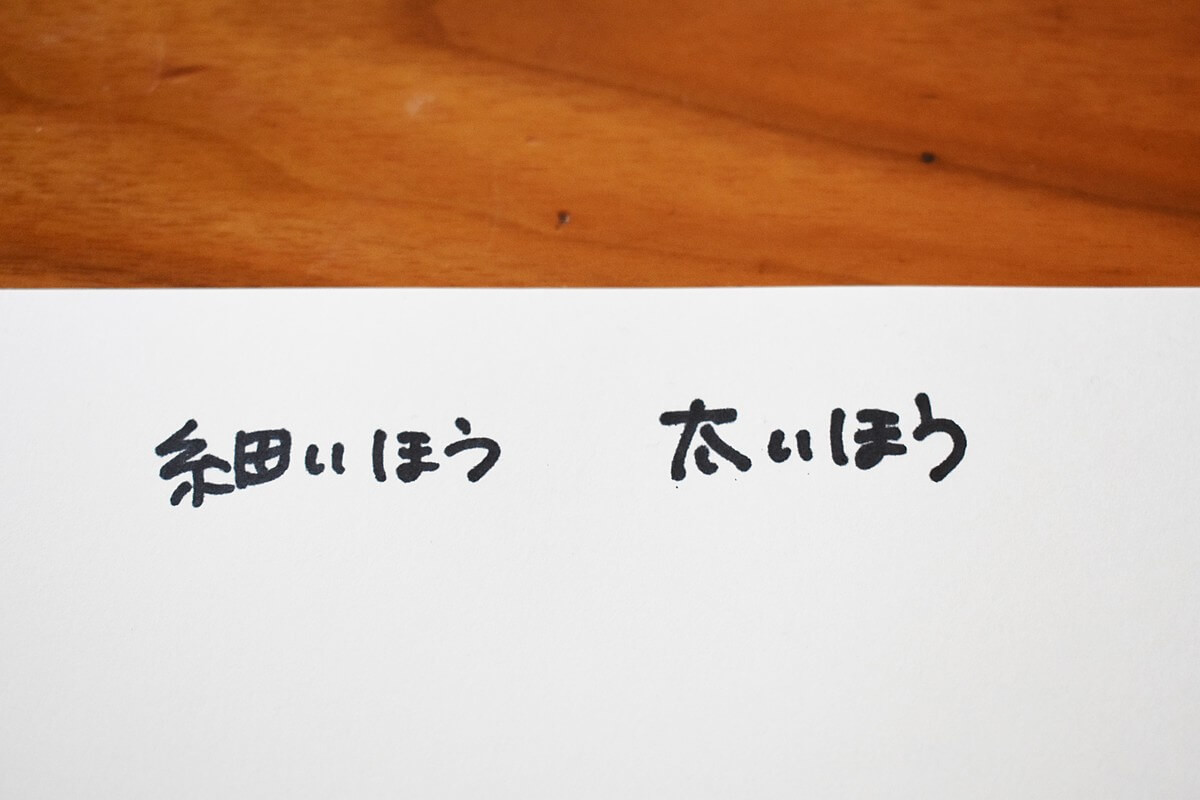 細いほう 太いほう